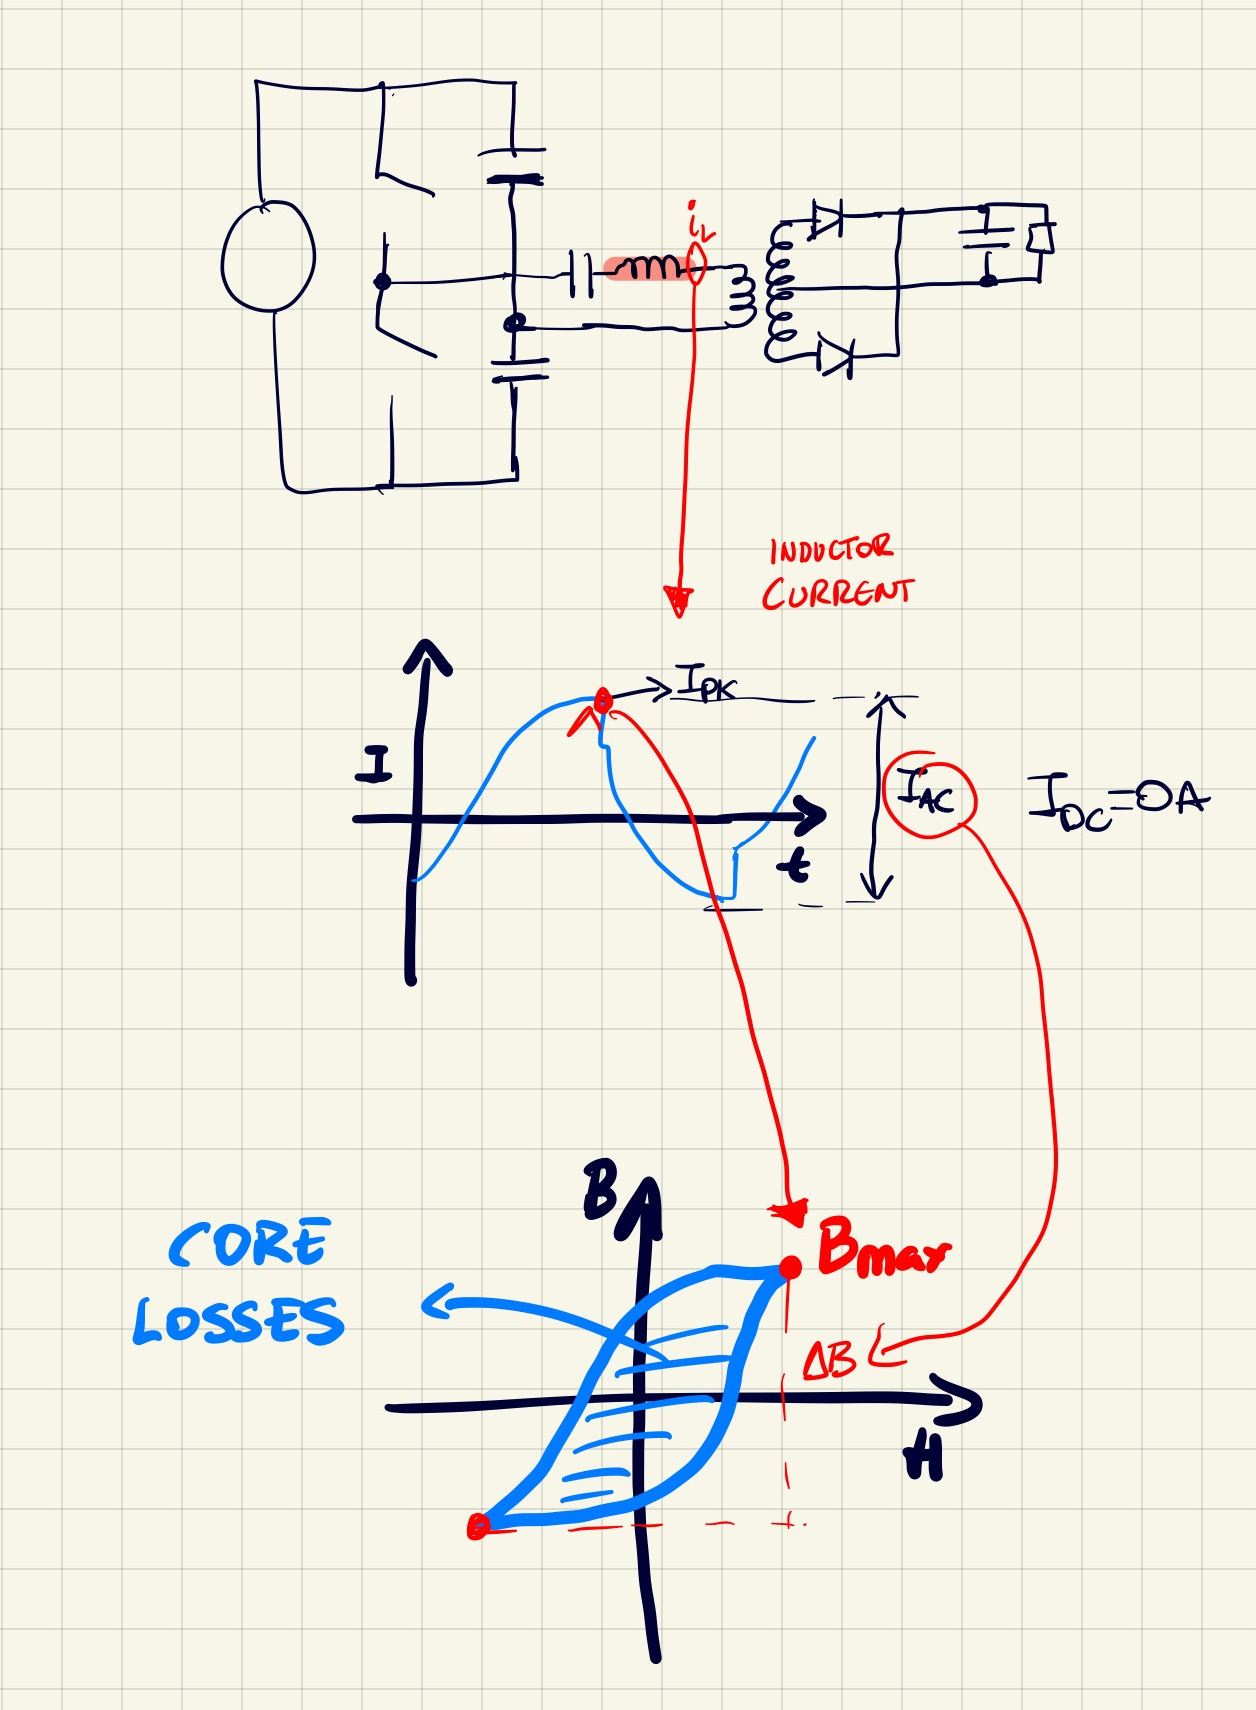 iL
INDUCTOR
CURRENT
IPK
I
IAC
IDC=0A
t
B
CORE
LOSSES
Bmax
ΔB
H